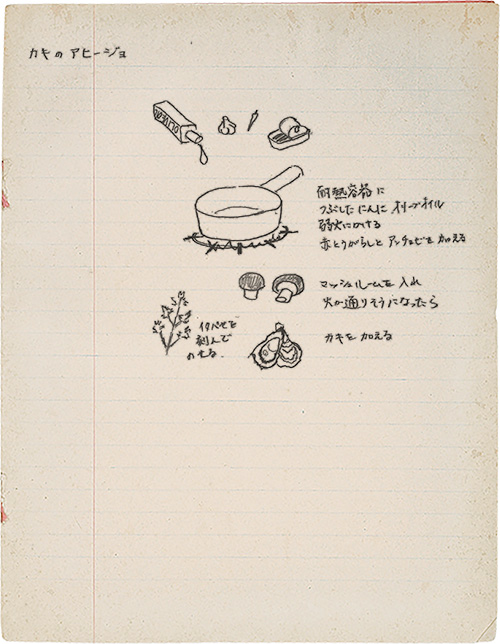 カキのアヒージョ
耐熱容器に
つぶしたにんにく オリーブオイル
弱火にかける
赤とうがらしと アンチョビを 加える
マッシュルームを 入れ
火が通りそうになったら
カキを 加える
イタパセを
刻んで
のせる